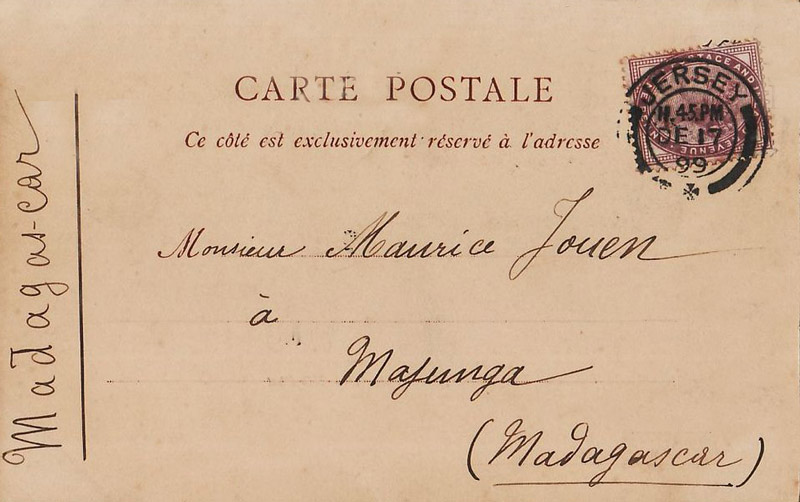 CARTE POSTALE
Ce côté est exclusivement réservé à l'adresse
JERSEY
11.45 PM
DE 17
99
Monsieur Maurice Jouen
à
Majunga
(Madagascar)
Madagascar